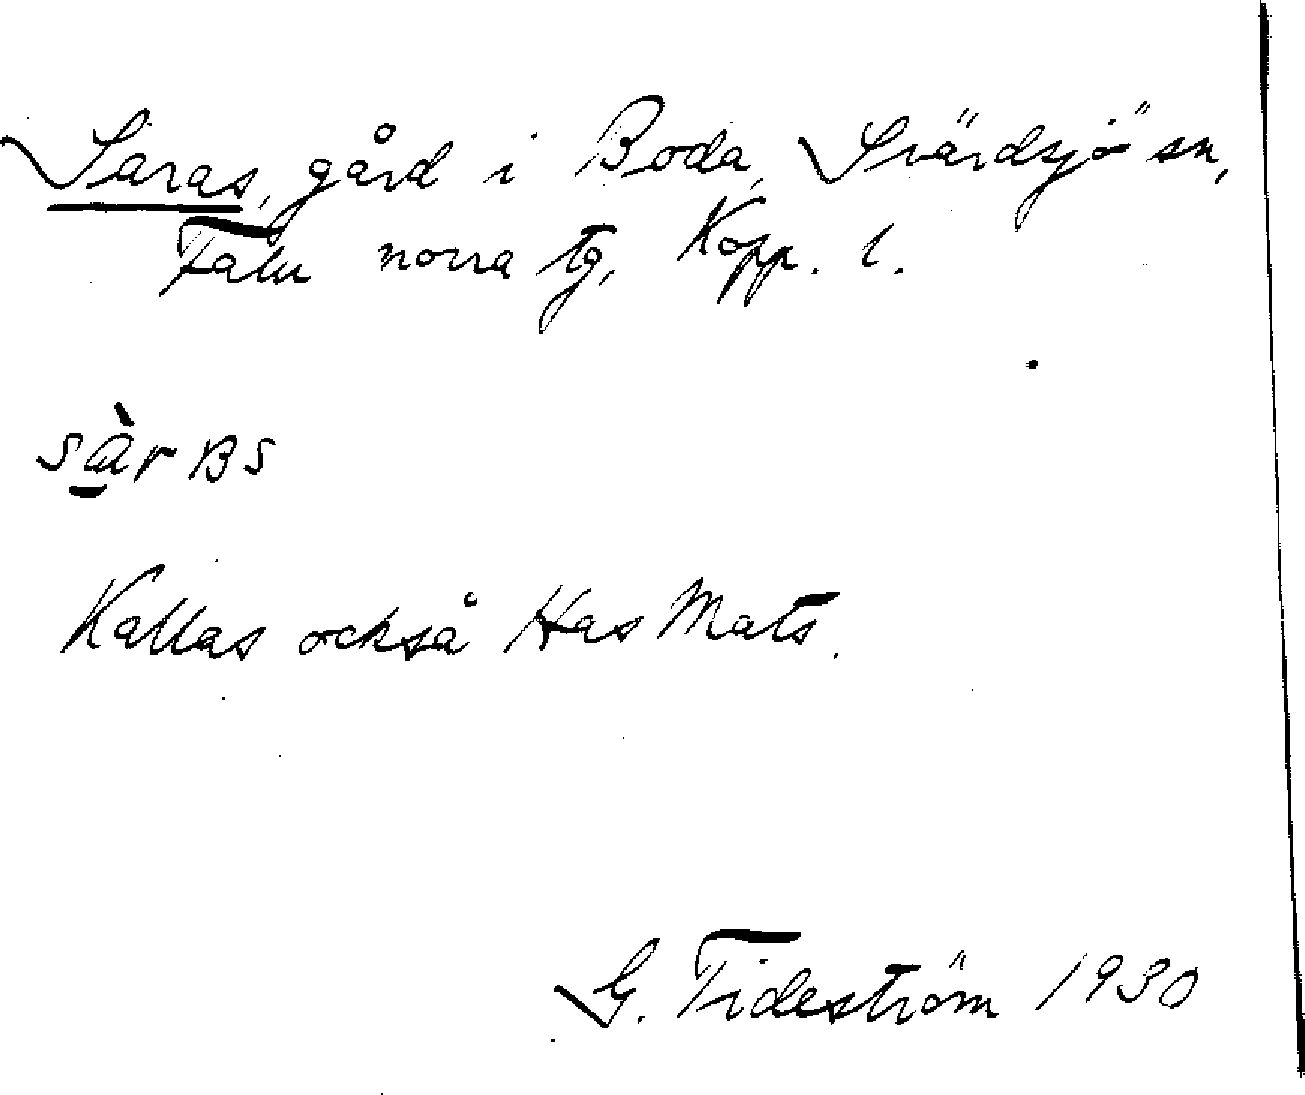 Saras, gård i Boda, Svärdsjö sn,
Falu norra tg, Kopp. l.
sàrBs
Kallas också Has Mats.
G. Tideström 1930